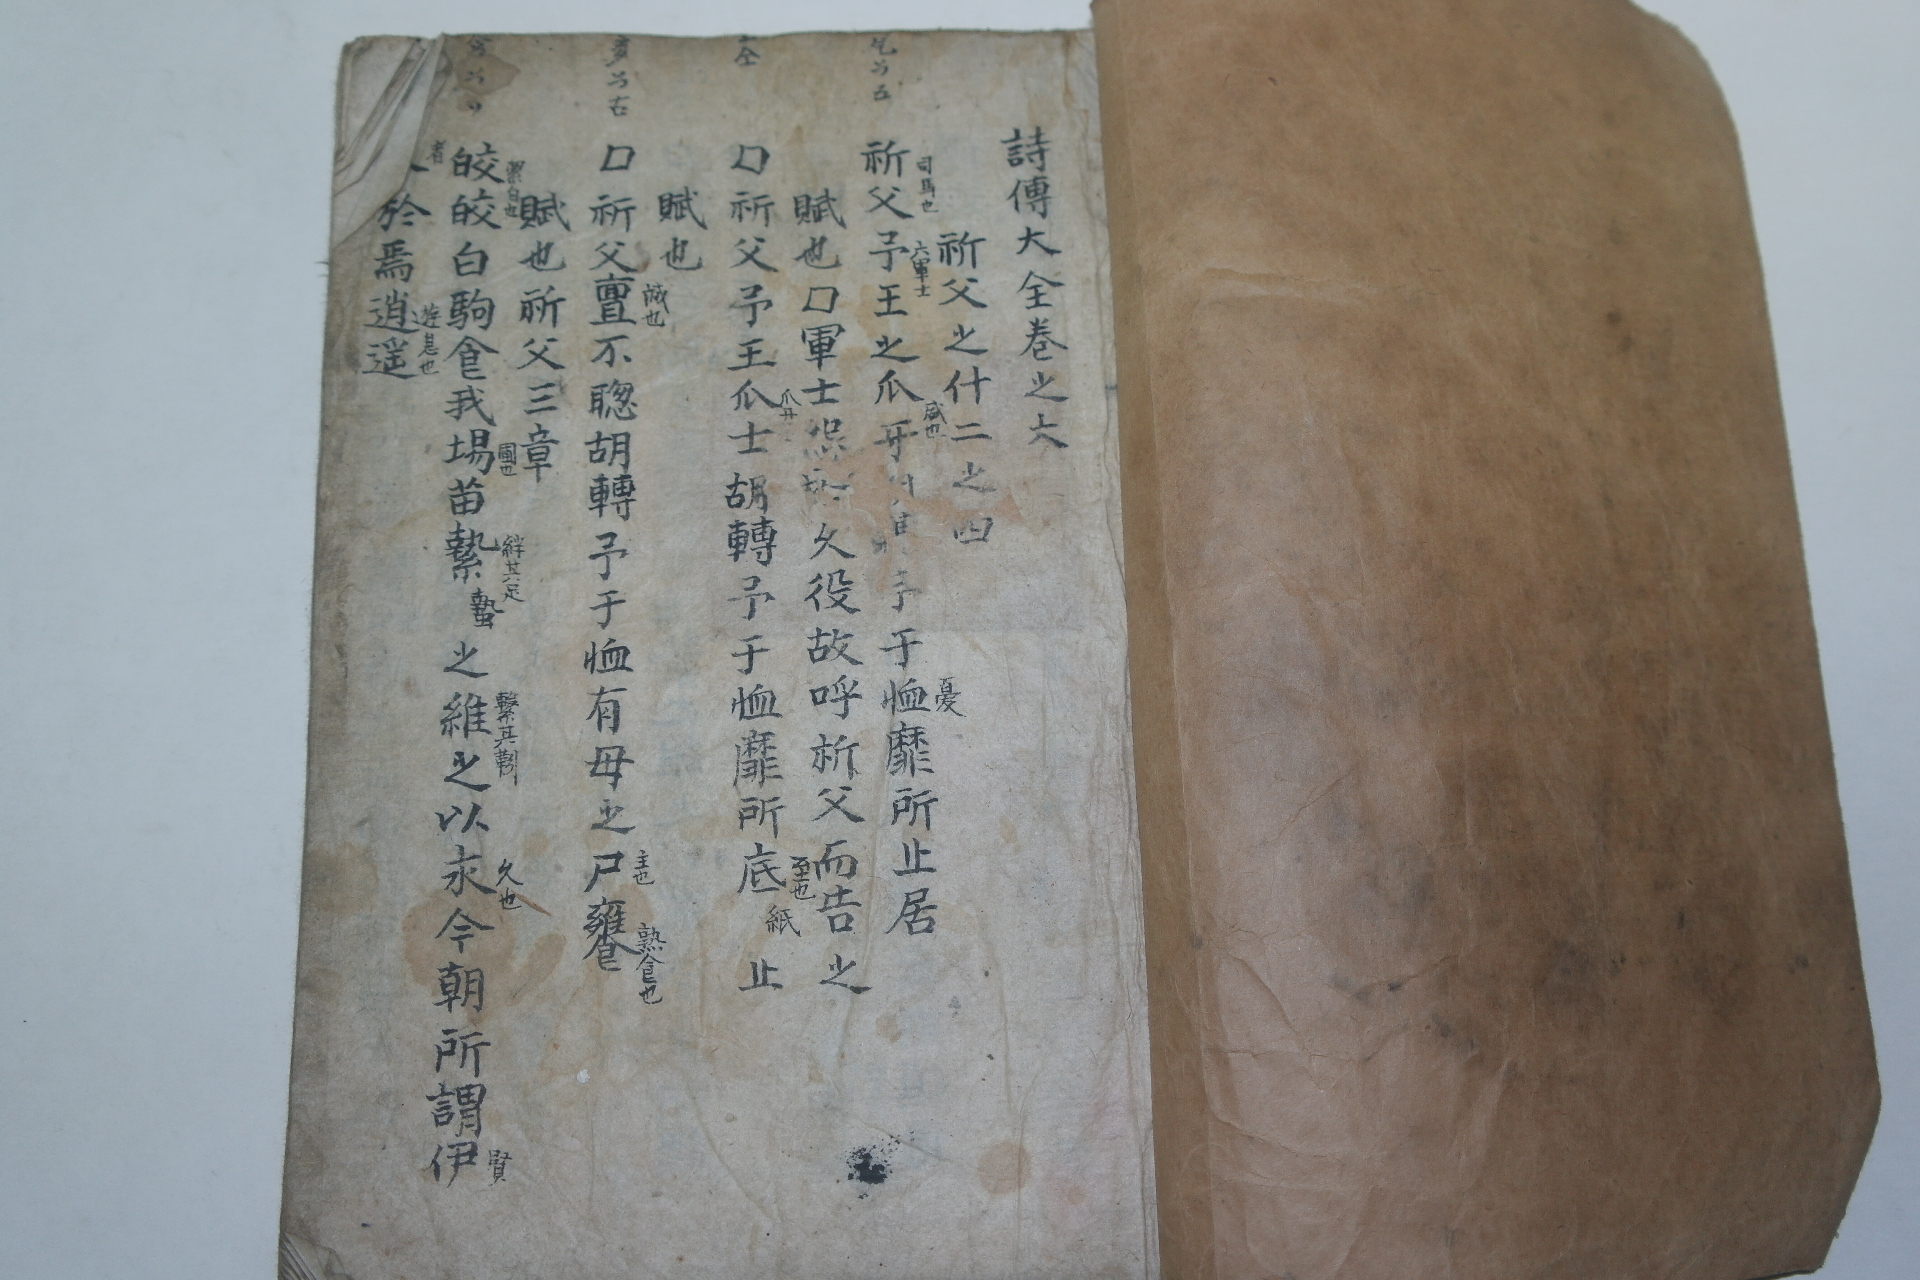 詩傳大全卷之六
祈父之什二之四
祈父司馬也予六軍士王之爪牙威也 予于恤憂靡所止居
賦也口軍士怨 久役故呼祈父而告之
口祈父予王爪士爪牙胡轉予于恤靡所底至也紙止
賦也
口祈父亶誠也不聰胡轉予于恤有母之尸主也饔熟食也
賦也祈父三章
皎皎潔白也白駒食我場圃也苗縶絆其足蟄之維繫其靷之以永久也今朝所謂伊賢
人者於焉逍遊息也遥